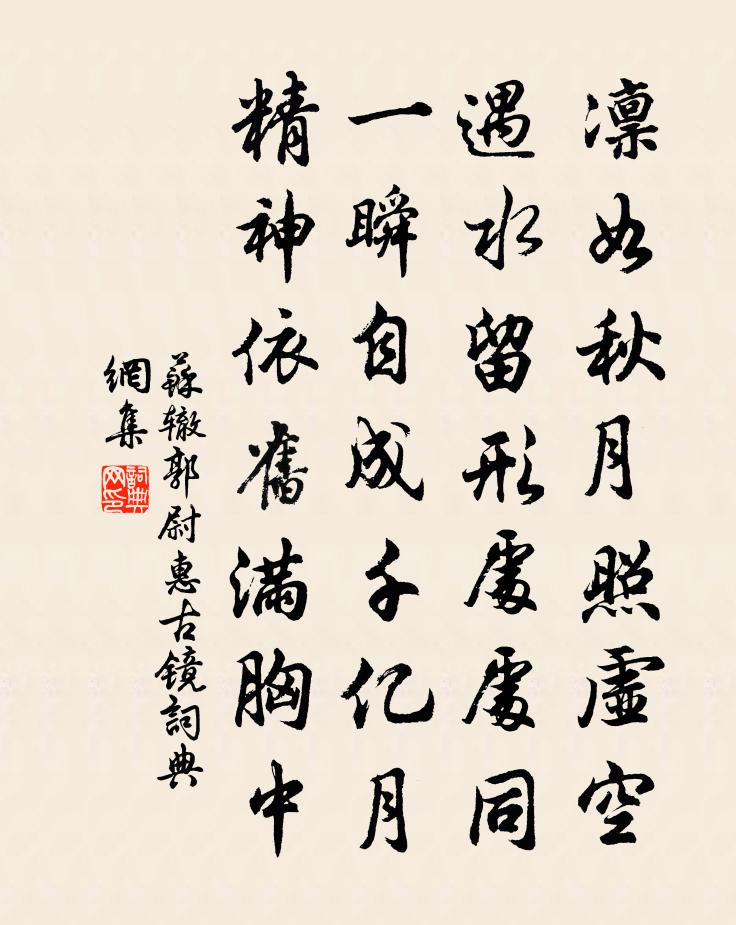 凛如秋月照虚空
遇水留形處處同
一瞬自成千亿月
精神依舊满胸中
蘇辙郭尉惠古镜詞典
網集
詞典
网印